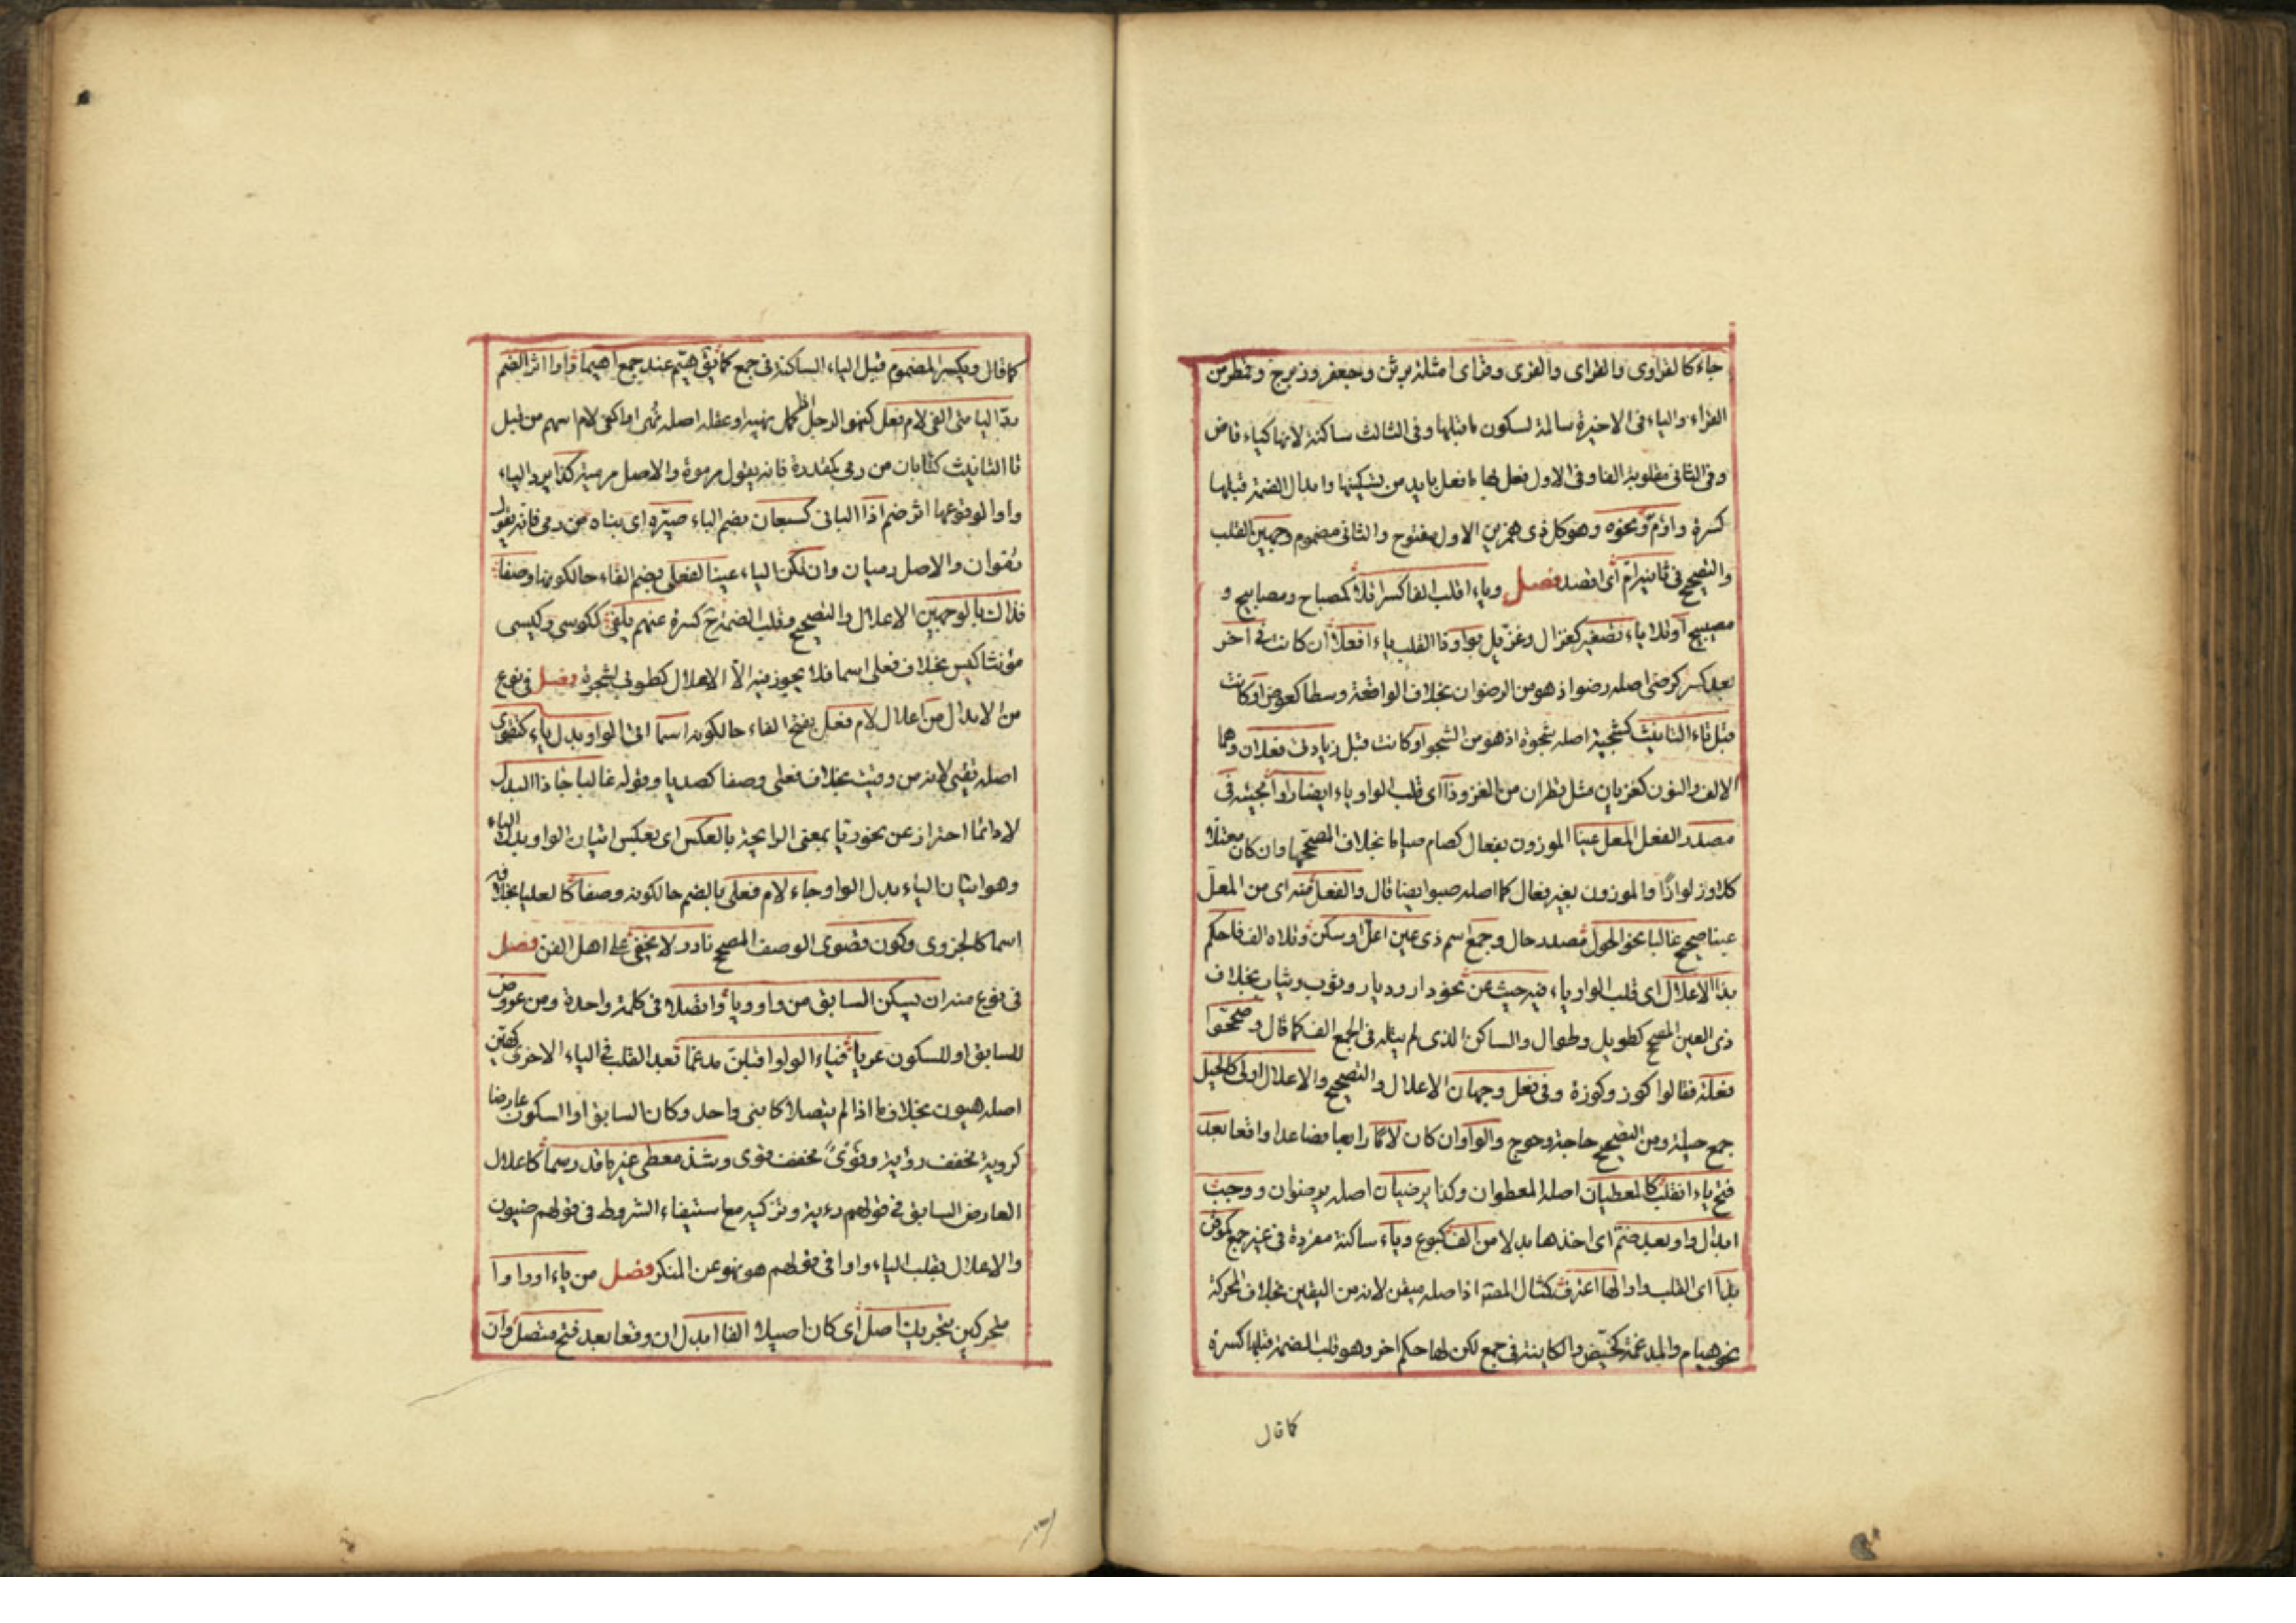 جاء كالقراوى والقراى والقرى وقراى امثلة برثن وجعفر وزبرج وقمطر من
القراء والياء فى الاخيرة سالمة لسكون ما قبلها وفى الثالث ساكنة لانها كياء قاض
وفى الثانى مقلوبة الفا وفى الاول فعل بها ما فعل بايد من تسكينها وابدال الضمة قبلها
كسرة واؤمّ ونحوه وهو كل ذى همزين الاول مفتوح والثانى مضموم وجهين القلب
والتصحيح فى ثانيه امّ اى اقصد فصل وياء اقلب الفا كسرا تلا كمصباح ومصابيح و
مصيبيح او تلا ياء تصغير كغزال وغزيّل بواو ذا القلب ياء افعلا ان كانت فى اخر
بعد كسر كرضى اصله رضو اذ هو من الرضوان بخلاف الواقعة وسطا كعوض او كانت
قبل تاء التانيث كشجية اصله شجوة اذ هو من الشجو او كانت قبل زيادتى فعلان وهما
الالف والنون كغزيان مثل قطران من الغزو ذا اى قلب الواو ياء ايضا راوا مجيئه فى
مصدر الفعل المعل عينا الموزون بفعال كصام صياما بخلاف المصحّحها وان كان معتلا
كلاوذ لواذا والموزون بغير فعال كما اصله صبوا يضا قال والفعل منه اى من المعلّ
عينا صحيح غالبا نحو الحول مصدر حال وجمع اسم ذى عين اعلّ او سكن وتلاه الف فاحكم
بذا الاعلال اى قلب الواو ياء فيه حيث عن نحو دار وديار وثوب وثياب بخلاف
ذى العين المصحح كطويل وطوال والساكن الذى لم يتله فى الجمع الف كما قال وصححوا
فعلة فقالوا كوز وكوزة وفى فعل وجهان الاعلال والتصحيح والاعلال اولى كالحيل
جمع حيلة ومن التصحيح حاجة وحوج والواو ان كان لاما رابعا فصاعدا واقعا بعد
فتح ياء انقلب كالمعطيان اصله المعطوان وكذا يرضيان اصله يرضوان ووجب
ابدال واو بعد ضمّ اى اخذها بدلا من الف كبويع وياء ساكنة مفردة فى غير جمع كموقن
بذا اى القلب واوا لها اعترف كمثال المصنف اذ اصله ميقن لانه من اليقين بخلاف المحركة
نحو هيام والمدغمة كحيّض والكاينة فى جمع لكن لها حكم اخر وهو قلب الضمة قبلها كسرة
كما قال
كما قال ويكسر المضموم قبل الياء الساكنة فى جمع كما يقال هيم عند جمع اهيما وواوا اثر الضم
ردّ اليا متى الفى لام فعل كنهو الرجل اذا كمل نهيه او عقله اصله نُهى او الفى لام اسم من قبل
تا التانيث كتابان من رمى كمقدرة فانه يقول مرموة والاصل مرمية كذا يرد الياء
واوا لوقوعها اثر ضم اذا البانى كسبعان بضم الباء صيّره اى بناه من رمى فانه يقول
رموان والاصل رميان وان تكن الياء عينا لفعلى بضم الفاء حالكونها وصفا
فذاك بالوجهين الاعلال والتصحيح وقلب الضمة ح كسرة عنهم يلفى ككوسى وكيسى
مؤنثا كيس بخلاف فعلى اسما فلا يجوز فيه الا الاعلال كطوبى لشجرة فصل فى نوع
من الابدال من اعلال لام فعلى بفتح الفاء حالكونه اسما اتى الواو بدل ياء كتقوى
اصله تقيى لانه من وقيت بخلاف فعلى وصفا كصديا وقوله غالبا جا ذا البدل
لا دائما احتراز عن نحو ريّا بمعنى الرايحة بالعكس اى بعكس اتيان الواو بدل الياء
وهو اتيان الياء بدل الواو جاء لام فعلى بالضم حالكونه وصفا كالعليا بخلافه
اسما كالحزوى وكون قصوى الوصف المصحح نادرا لا يخفى على اهل الفن فصل
فى نوع منه ان يسكن السابق من واو ويا واتصلا فى كلمة واحدة ومن عروض
للسابق او للسكون عريا فياء الواو اقلبن مدغما بعد القلب فى الياء الاخرى كهيّن
اصله هيون بخلاف ما اذا لم يتصلا كابنى واحد وكان السابق او السكون عارضا
كروية مخفف رؤية وقَوْىَ مخفف قوى وشذ معطى غير ما قد رسما كاعلال
العارض السابق فى قولهم رية وتركه مع استيفاء الشروط فى قولهم ضيون
والاعلال بقلب الياء واوا فى قولهم هو نهو عن المنكر فصل من ياء او واو
متحركين بتحريك اصل اى كان اصيلا الفا ابدل ان وقعا بعد فتح متصل وان